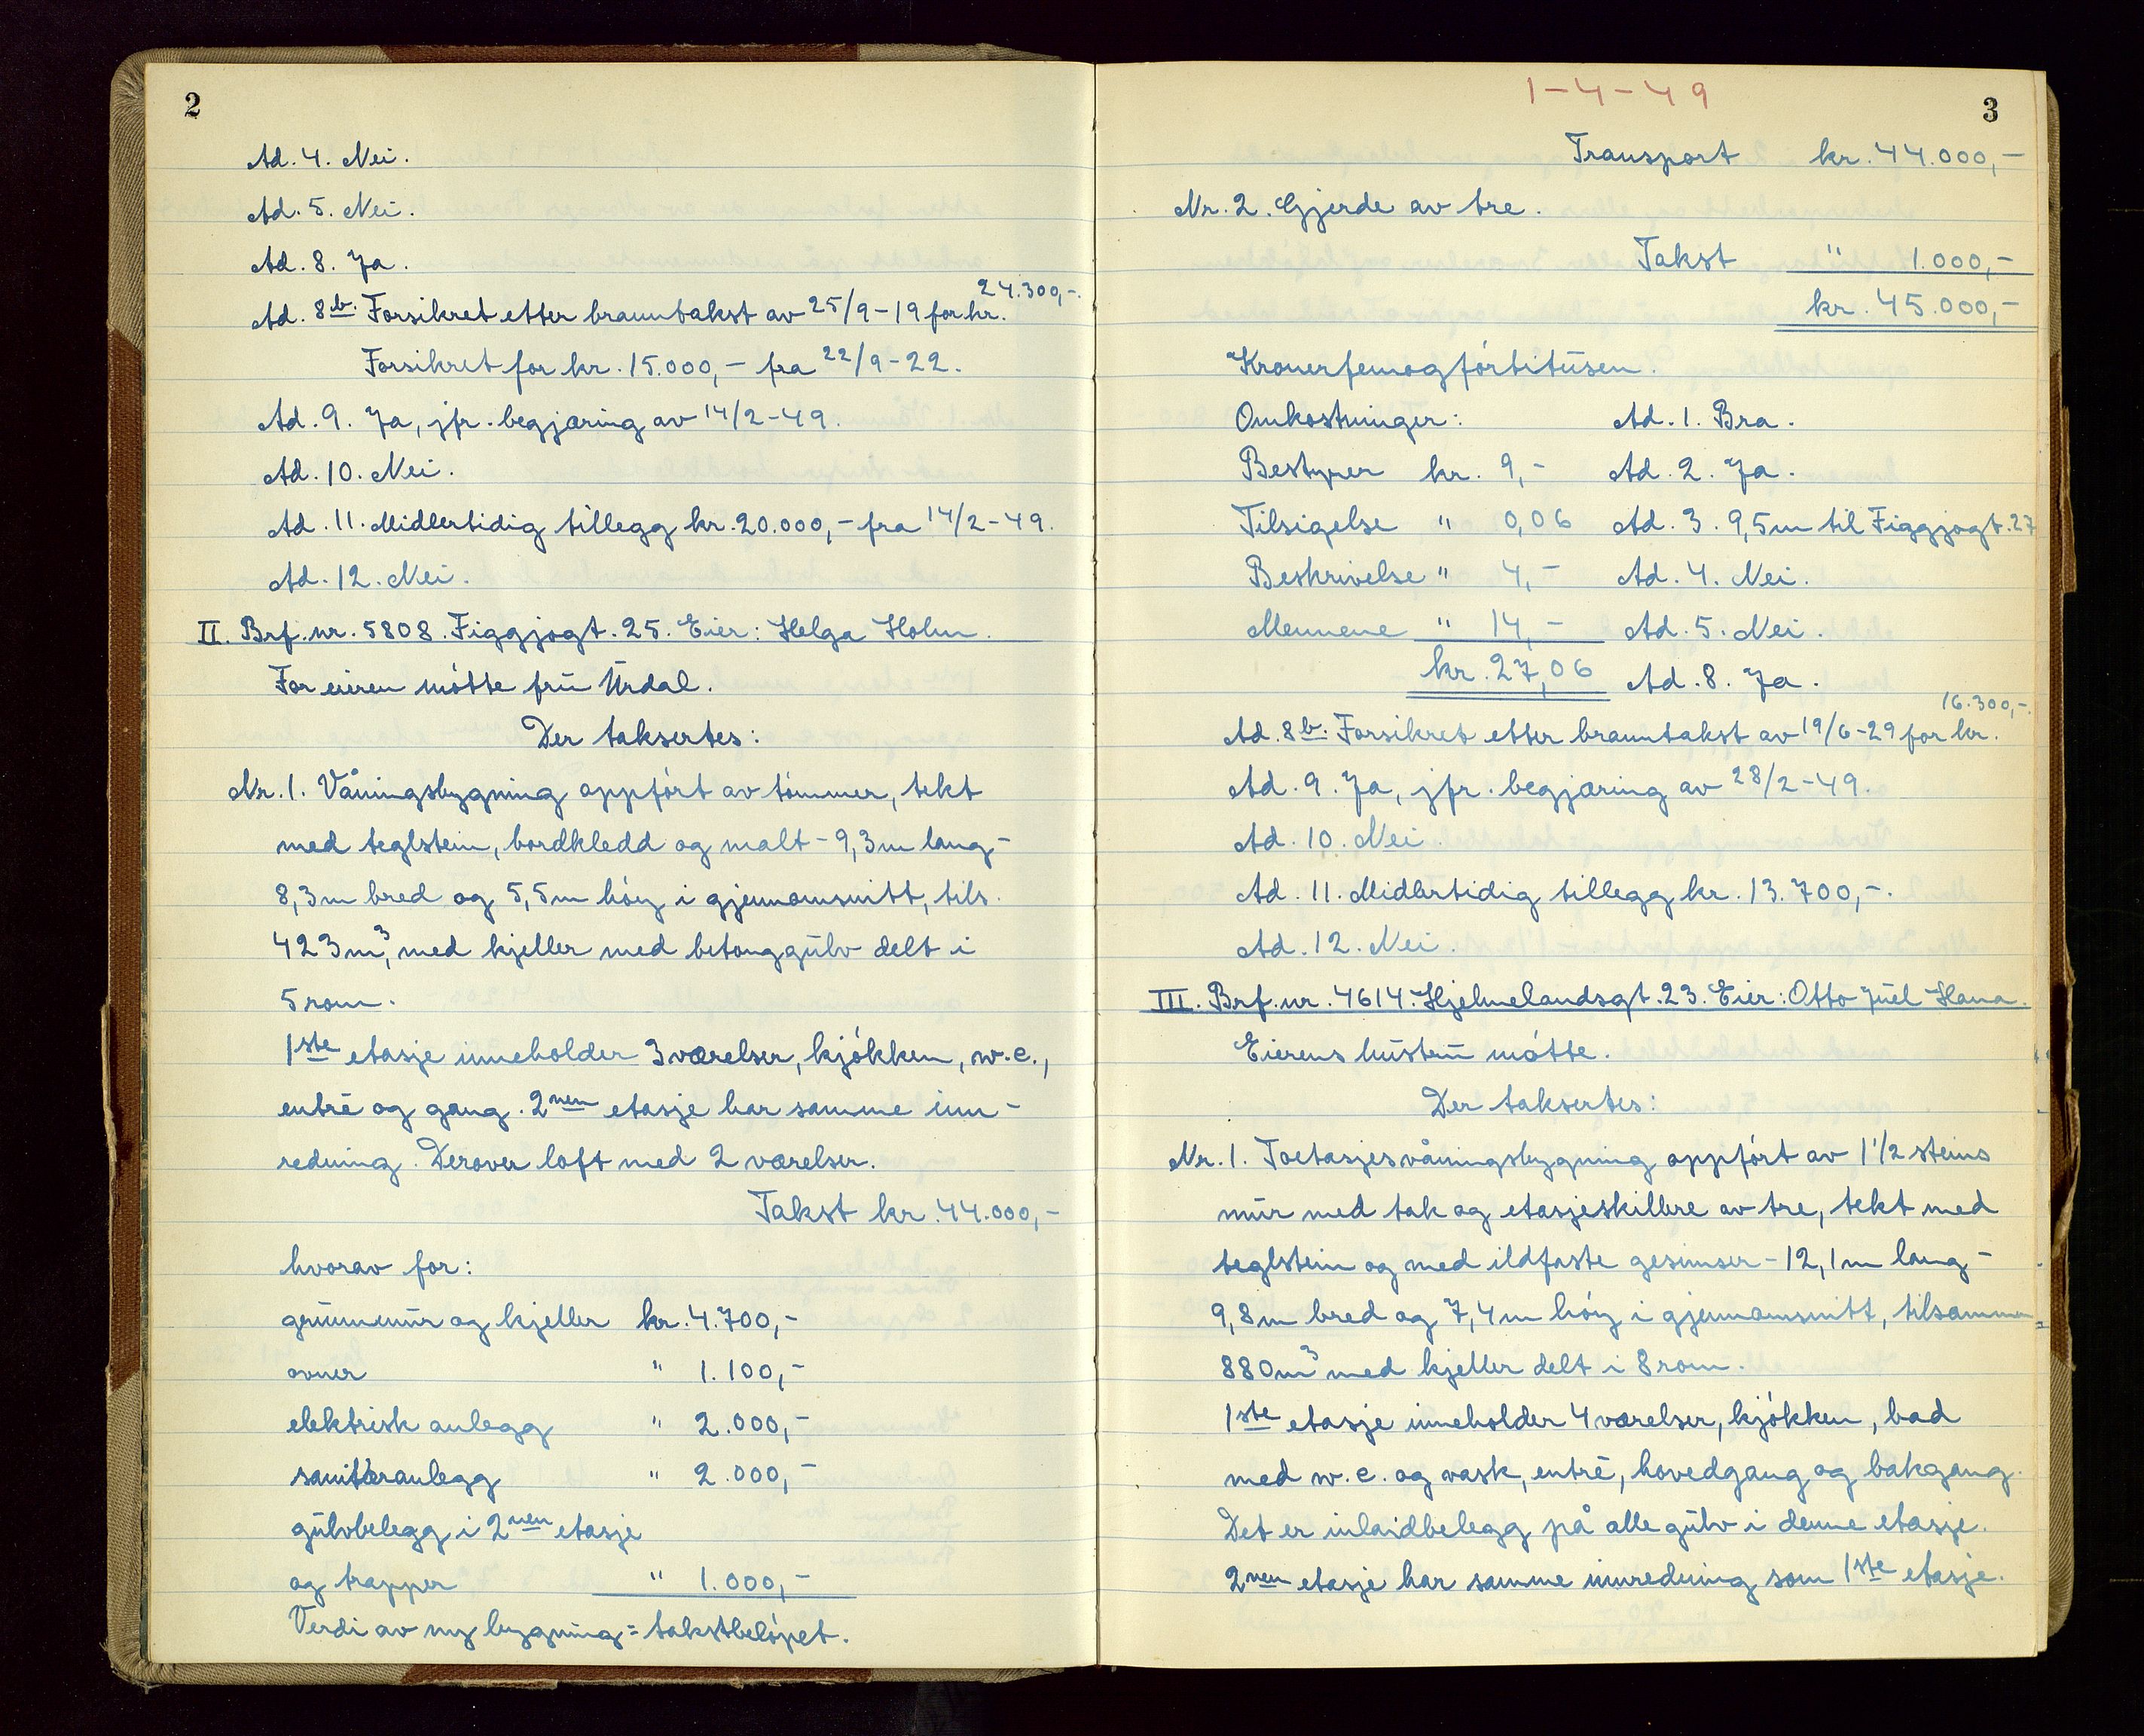 2
Ad. 4. Nei.
Ad. 5. Nei.
Ad. 8. Ja.
Ad. 8b. Forsikret etter branntakst av 25/9-19 for kr. 24.300,-.
Forsikret for kr. 15.000,- fra 22/9-22.
Ad. 9. Ja, jfr. begjæring av 14/2-49.
Ad. 10. Nei.
Ad. 11. Midlertidig tillegg kr. 20.000,- fra 14/2-49.
Ad. 12. Nei.
II. Brf. nr. 5808. Figgjogt. 25. Eier: Helga Holm.
For eieren møtte fru Urdal.
Der taksertes:
Nr. 1. Våningsbygning oppført av tømmer, tekt
med teglstein, bordkledd og malt - 9,3 m lang -
8,3 m bred og 5,5 m høy i gjennomsnitt, tils.
423 m³, med kjeller med betonggulv delt i
5 rom.
1ste etasje inneholder 3 værelser, kjøkken, w.c.,
entré og gang. 2nen etasje har samme inn-
redning. Derover loft med 2 værelser.
Takst kr. 44.000,-
hvorav for:
grunnmur og kjeller kr. 4.700,-
ovner " 1.100,-
elektrisk anlegg " 2.000,-
sanitæranlegg " 2.000,-
gulvbelegg i 2nen etasje
og trapper " 1.000,-
Verdi av ny bygning = takstbeløpet.
1-4-49
3
Transport kr. 44.000,-
Nr. 2. Gjerde av tre.
Takst " 1.000,-
kr. 45.000,-
Kronerfemogførtitusen.
Omkostninger: Ad. 1. Bra.
Bestyrer kr. 9,- Ad. 2. Ja.
Tilsigelse " 0,06 Ad. 3. 9,5 m til Figgjogt. 27
Beskrivelse " 4,- Ad. 4. Nei.
Mennene " 14,- Ad. 5. Nei.
kr. 27,06 Ad. 8. Ja.
Ad. 8b. Forsikret etter branntakst av 19/6-29 for kr. 16.300,-.
Ad. 9. Ja, jfr. begjæring av 28/2-49.
Ad. 10. Nei.
Ad. 11. Midlertidig tillegg kr. 13.700,-.
Ad. 12. Nei.
III. Brf. nr. 4614. Hjelmelandsgt. 23. Eier: Otto Juel Hana.
Eierens hustru møtte.
Der taksertes:
Nr. 1. Toetasjes våningsbygning oppført av 1 1/2 steins
mur med tak og etasjeskillere av tre, tekt med
teglstein og med ildfaste gesimser - 12,1 m lang -
9,8 m bred og 7,4 m høy i gjennomsnitt, tilsammen
880 m³ med kjeller delt i 8 rom.
1ste etasje inneholder 4 værelser, kjøkken, bad
med w.c. og vask, entré, hovedgang og bakgang.
Det er inlaidbelegg på alle gulv i denne etasje.
2nen etasje har samme innredning som 1ste etasje.